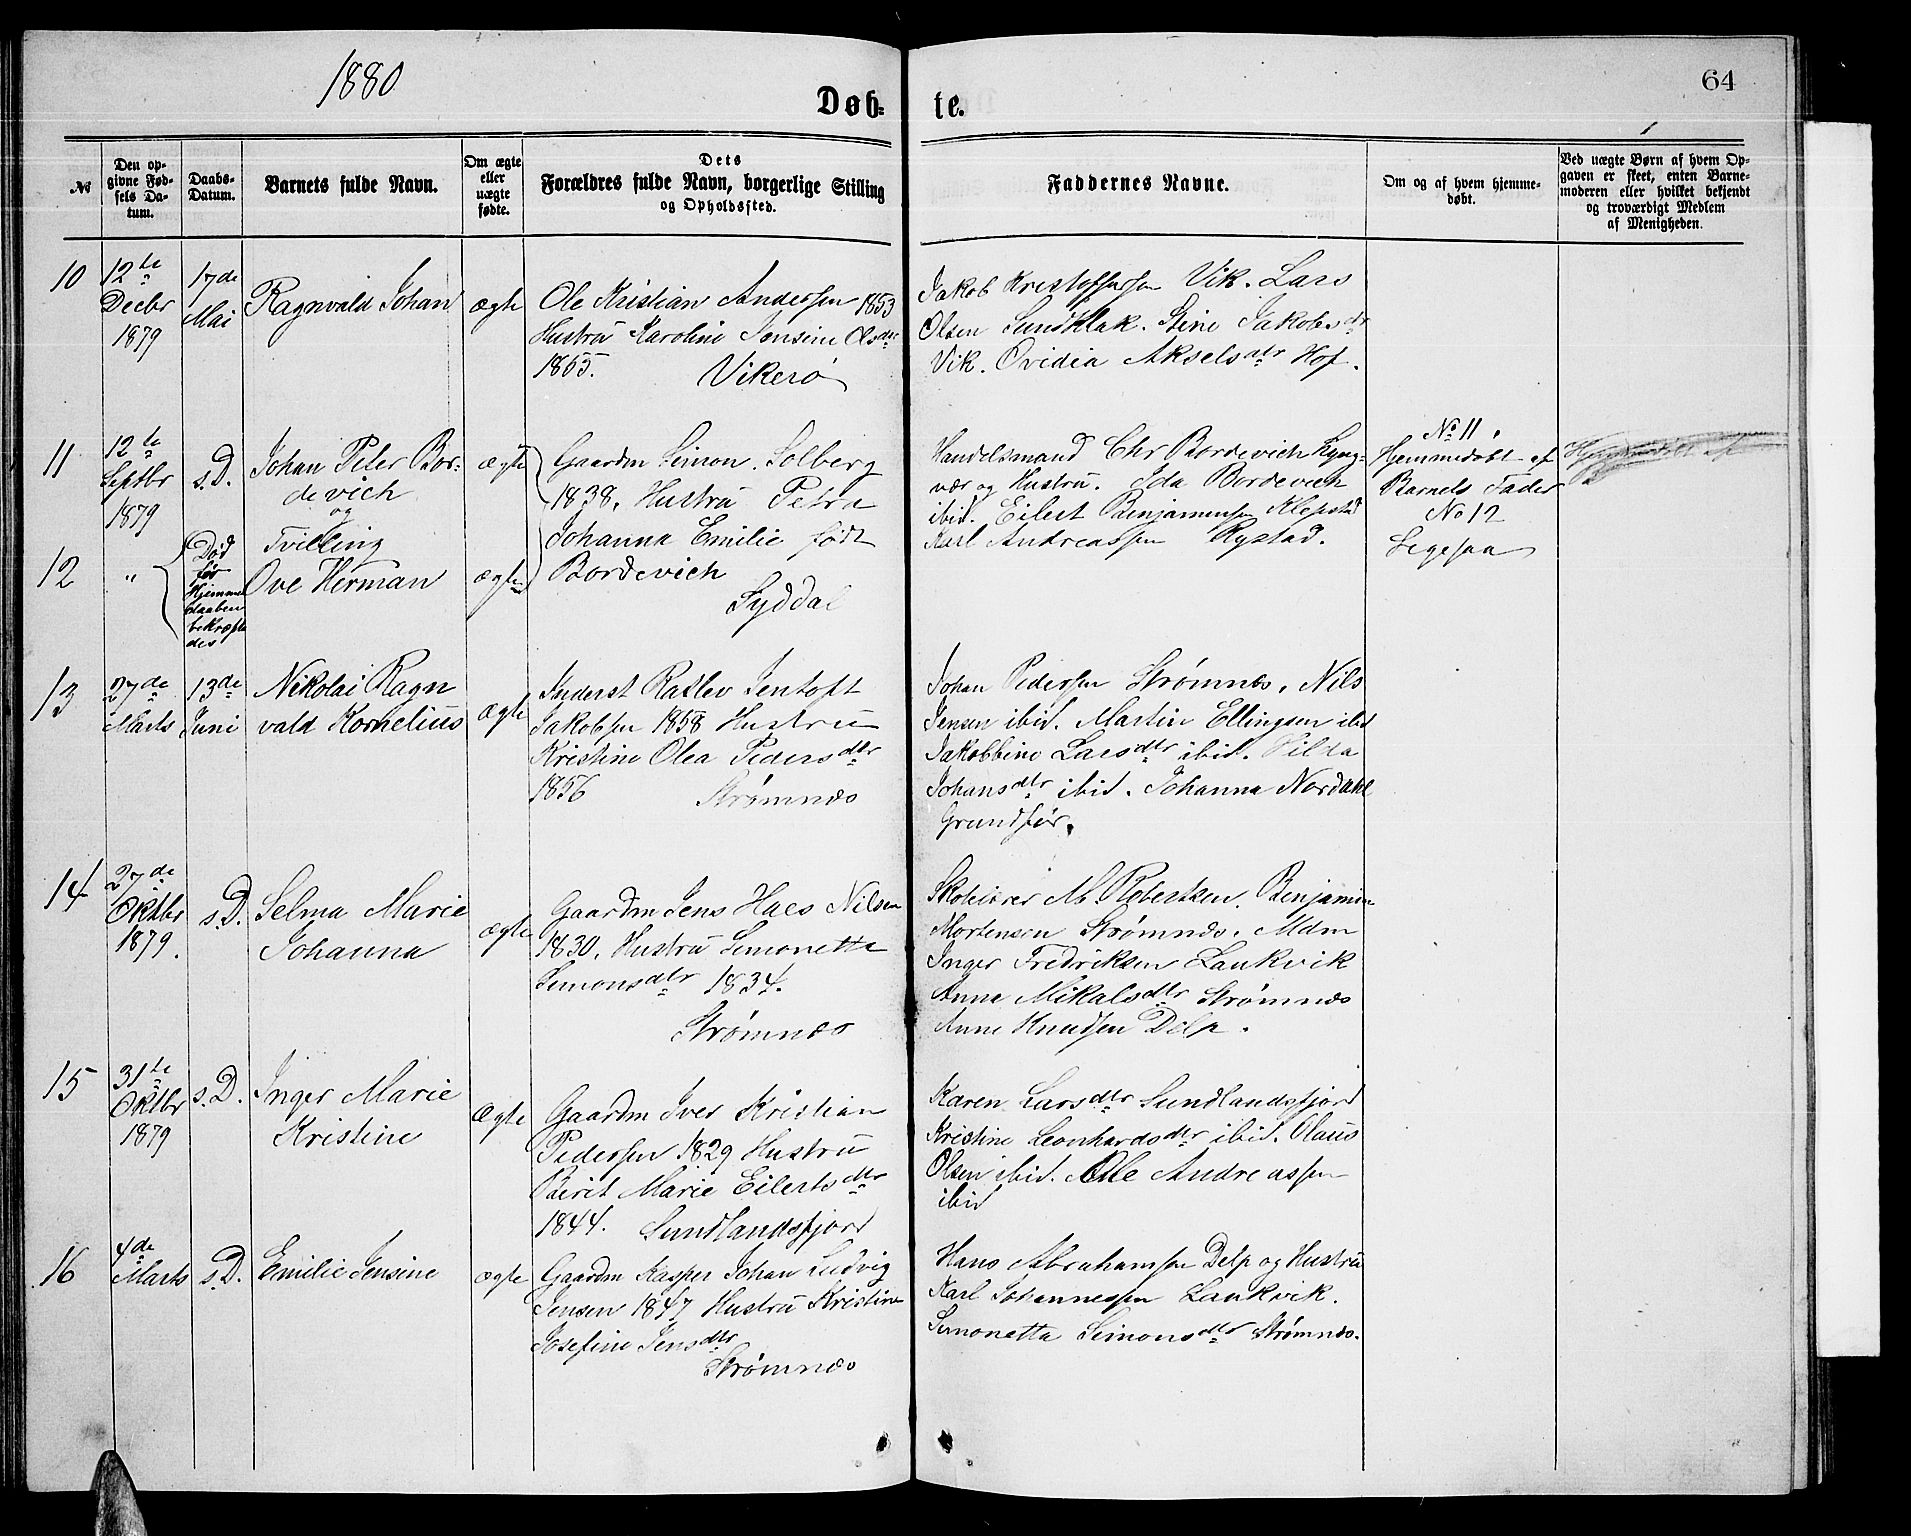 1880
Døb-
te.
64
№
Den op-
givne Fød-
sels Da-
tum.
Daabs-
Datum.
Barnets fulde Navn.
Om ægte
eller
uægte
fødte.
Dets
Forældres fulde Navn, borgerlige Stilling
og Opholdssted.
Faddernes Navne.
Om og af hvem hjemme-
døbt.
Ved uægte Børn af hvem Op-
gaven er skeet, enten Barne-
moderen eller hvilket bekjendt
og troværdigt Medlem
af Menigheden.
10
12te
Decbr
1879
17de
Mai
Ragnvald Johan
ægte
Ole Kristian Andersen 1853
Hustru Karoline Jensine Olsdtr
1855.
Vikerø
Jakob Kristoffersen Vik. Lars
Olsen Sundklak. Stine Jakobsdtr
Vik. Ovidia Akselsdtr Hof.
11
12te
Septbr
1879
s.D.
Johan Peter Bor-
devich
og
Tvilling
ægte
Gaardm Simon Solberg
1838, Hustru Petra
Johanna Emilie født
Bordevich
Syddal
Handelsmand Chr Bordevich Lyng-
vær og Hustru. Ida Bordevich
ibid. Eilert Benjaminsen Klepstad
Karl Andreassen Rystad.
No 11.
Hjemmedøbt af
Barnets Fader
No 12
Ligesaa
Hjemmedøbt af
12
"
Død
før
Hjemme
daaben
bekræfte
des
Ove Herman
ægte
13
27de
Marts
13de
Juni
Nikolai Ragn
vald Kornelius
ægte
Inderst Ratlev Jentoft
Jakobsen 1858 Hustru
Kristine Olea Pedersdtr
1856
Strømnæs
Johan Pedersen Strømnæs. Nils
Jensen ibid. Martin Ellingsen ibid
Jakobbine Larsdtr ibid. Hilda
Johansdtr ibid. Johanna Nordahl
Grundfør.
14
27de
Oktbr
1879.
s.D.
Selma Marie
Johanna
ægte
Gaardm Jens Haes Nilsen
1830. Hustru Simonetta
Simonsdtr 1834.
Strømnæs
Skolelærer M Robertsen. Benjamin
Mortensen Strømnæs. Mdm
Inger Fredriksen Laukvik
Anne Mikalsdtr Strømnæs
Anne Knudsen Delp.
15
31te
Oktbr
1879
s.D.
Inger Marie
Kristine
Ægte
Gaardm Iver Kristian
Pedersen 1829 Hustru
Berit Marie Eilertsdtr
1844. Sundlandsfjord
Karen Larsdtr Sundlandsfjord
Kristine Leonhardsdtr ibid. Olaus
Olsen ibid. Ole Andreassen
ibid
16
4de
Marts
s.D.
Emilie Jensine
ægte
Gaardm Kasper Johan Ludvig
Jensen 1847 Hustru Kristine
Josefine Jensdtr
Strømnæs
Hans Abrahamsen Delp og Hustru
Karl Johannessen Laukvik.
Simonetta Simonsdtr Strømnæs.